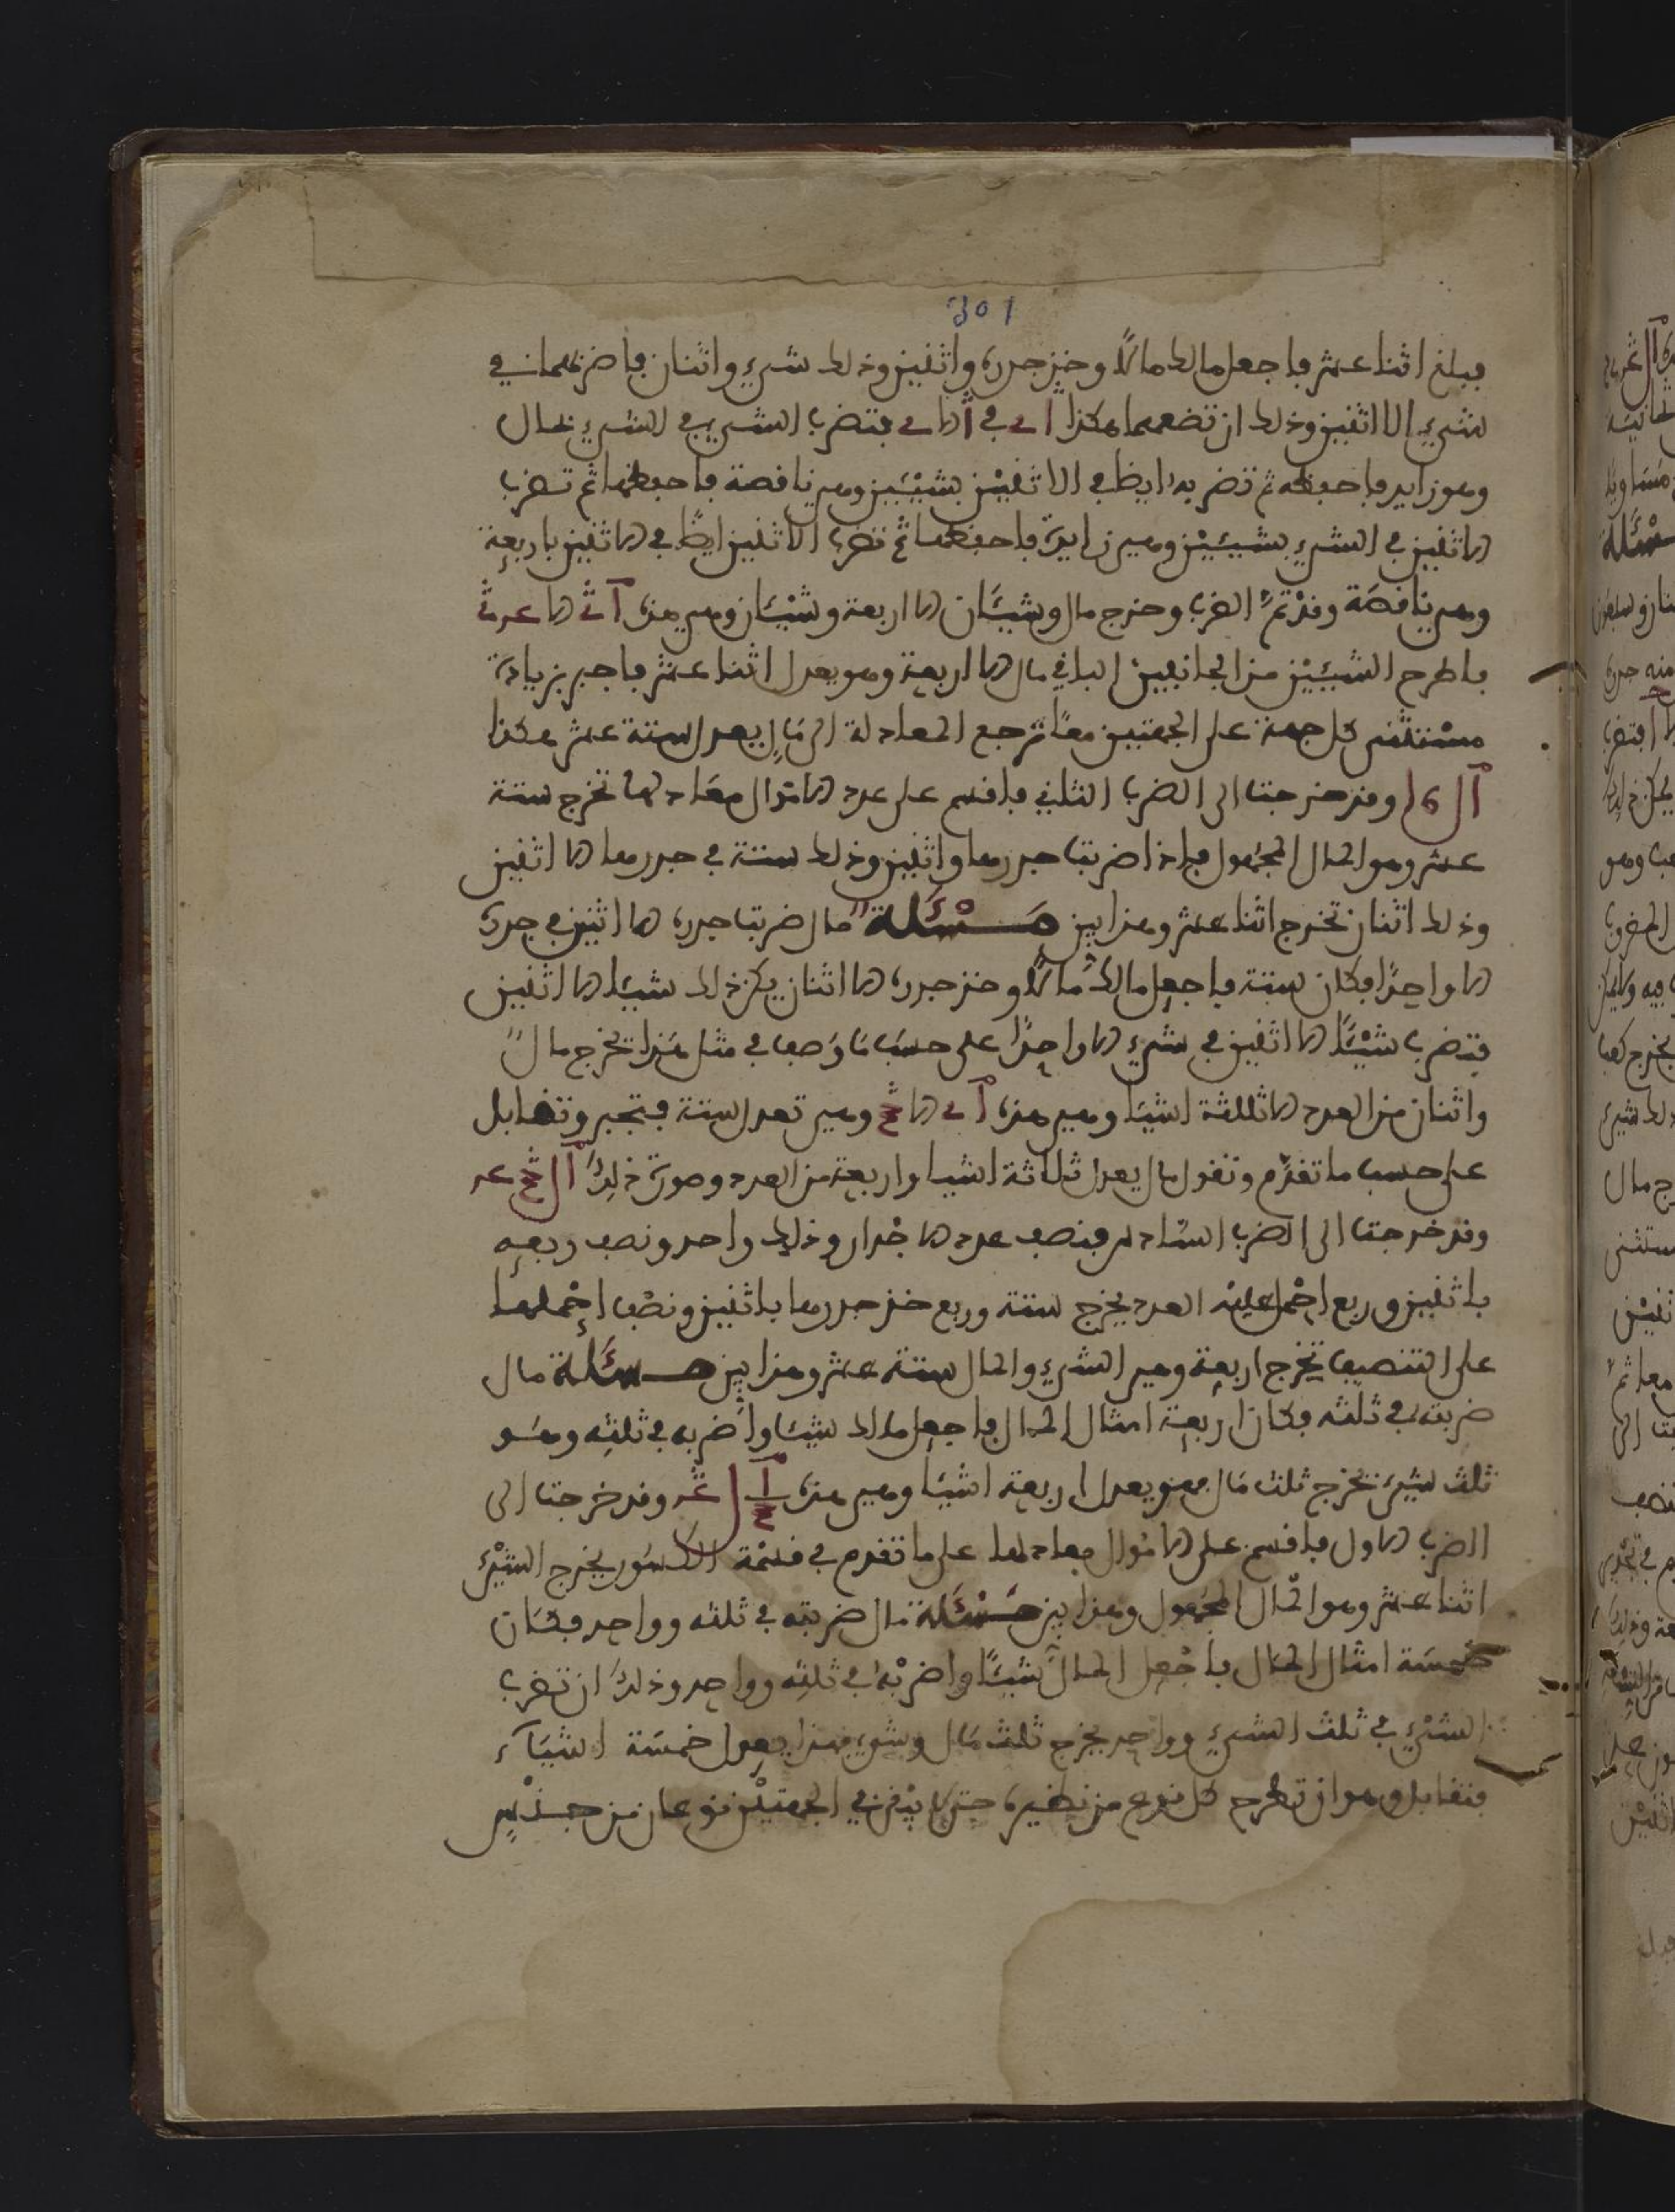 301
فبلغ اثنا عشر فاجعل مالك مالًا وخذ جذره واثنين وذلك شيء واثنان فاضربهما في
شيء إلا اثنين وذلك ان تضعهما هكذا في فتضرب الشيء في الشيء بمال
وهو زايد فاحفظه ثم تضربه ايضا في الا اثنين بشيئين وهي ناقصة فاحفظها ثم تضرب
الاثنين في الشيء بشيئين وهي زايدة فاحفظها ثم تضرب الاثنين ايضًا في الا اثنين باربعة
وهي ناقصة وقد تمّ الضرب وخرج مال وشيئان الا اربعة وشيئان وهي هذه
فاطرح الشيئين من الجانبين الباقي مال الا اربعة وهو يعدل اثنا عشر فاجبر بزيادة
مستثنى كل جهة على الجهتين معًا ترجع المعادلة الى مال يعدل ستة عشر هكذا
وقد خرجت الى الضرب الثاني فاقسم على عدد الاموال معادلها تخرج ستة
عشر وهو المال المجهول فاذا ضربت جذرها واثنين وذلك ستة في جذرها الا اثنين
وذلك اثنان تخرج اثنا عشر وهذا بين مسئلة مال ضربت جذره الا اثنين في جذره
الا واحدًا فكان ستة فاجعل مالك مالًا وخذ جذره الا اثنان يكن ذلك شيئا الا اثنين
فتضرب شيئًا الا اثنين في شيء الا واحدًا على حسب ما وصف في مثل هذا تخرج مالٌ
واثنان من العدد الا ثلثة اشيا وهي هذه وهي تعدل ستة فتجبر وتقابل
على حسب ما تقدّم وتقول مال يعدل ثلاثة اشيا واربعة من العدد وصورة ذلك
وقد خرجت الى الضرب السادس فنصف عدد الاجذار وذلك واحد ونصف وربعه
باثنين وربع احمل عليه العدد يخرج ستة وربع خذ جذرها باثنين ونصف احملها
على التنصيف تخرج اربعة وهي الشيء والمال ستة عشر وهذا بين مسئلة مال
ضربته في ثلثه فكان اربعة امثال المال فاجعل مالك شيئا واضربه في ثلثه وهو
ثلث شيء تخرج ثلث مال وهو يعدل اربعة اشيا وهي هذه وقد خرجت الى
الضرب الاول فاقسم على الاموال معادلها على ما تقدم في قسمة الكسور يخرج الشيء
اثنا عشر وهو المال المجهول وهذا بين مسئلة مال ضربته في ثلثه وواحد فكان
خمسة امثال المال فاجعل المال شيئًا واضربه في ثلثه وواحد وذلك ان تضرب
الشيء في ثلث الشيء وواحد يخرج ثلث مال وشيء فهذا يعدل خمسة اشيآء
فتقابل وهو ان تطرح كل نوع من نظيره حتى لا يبقى في الجهتين نوعان من جنس